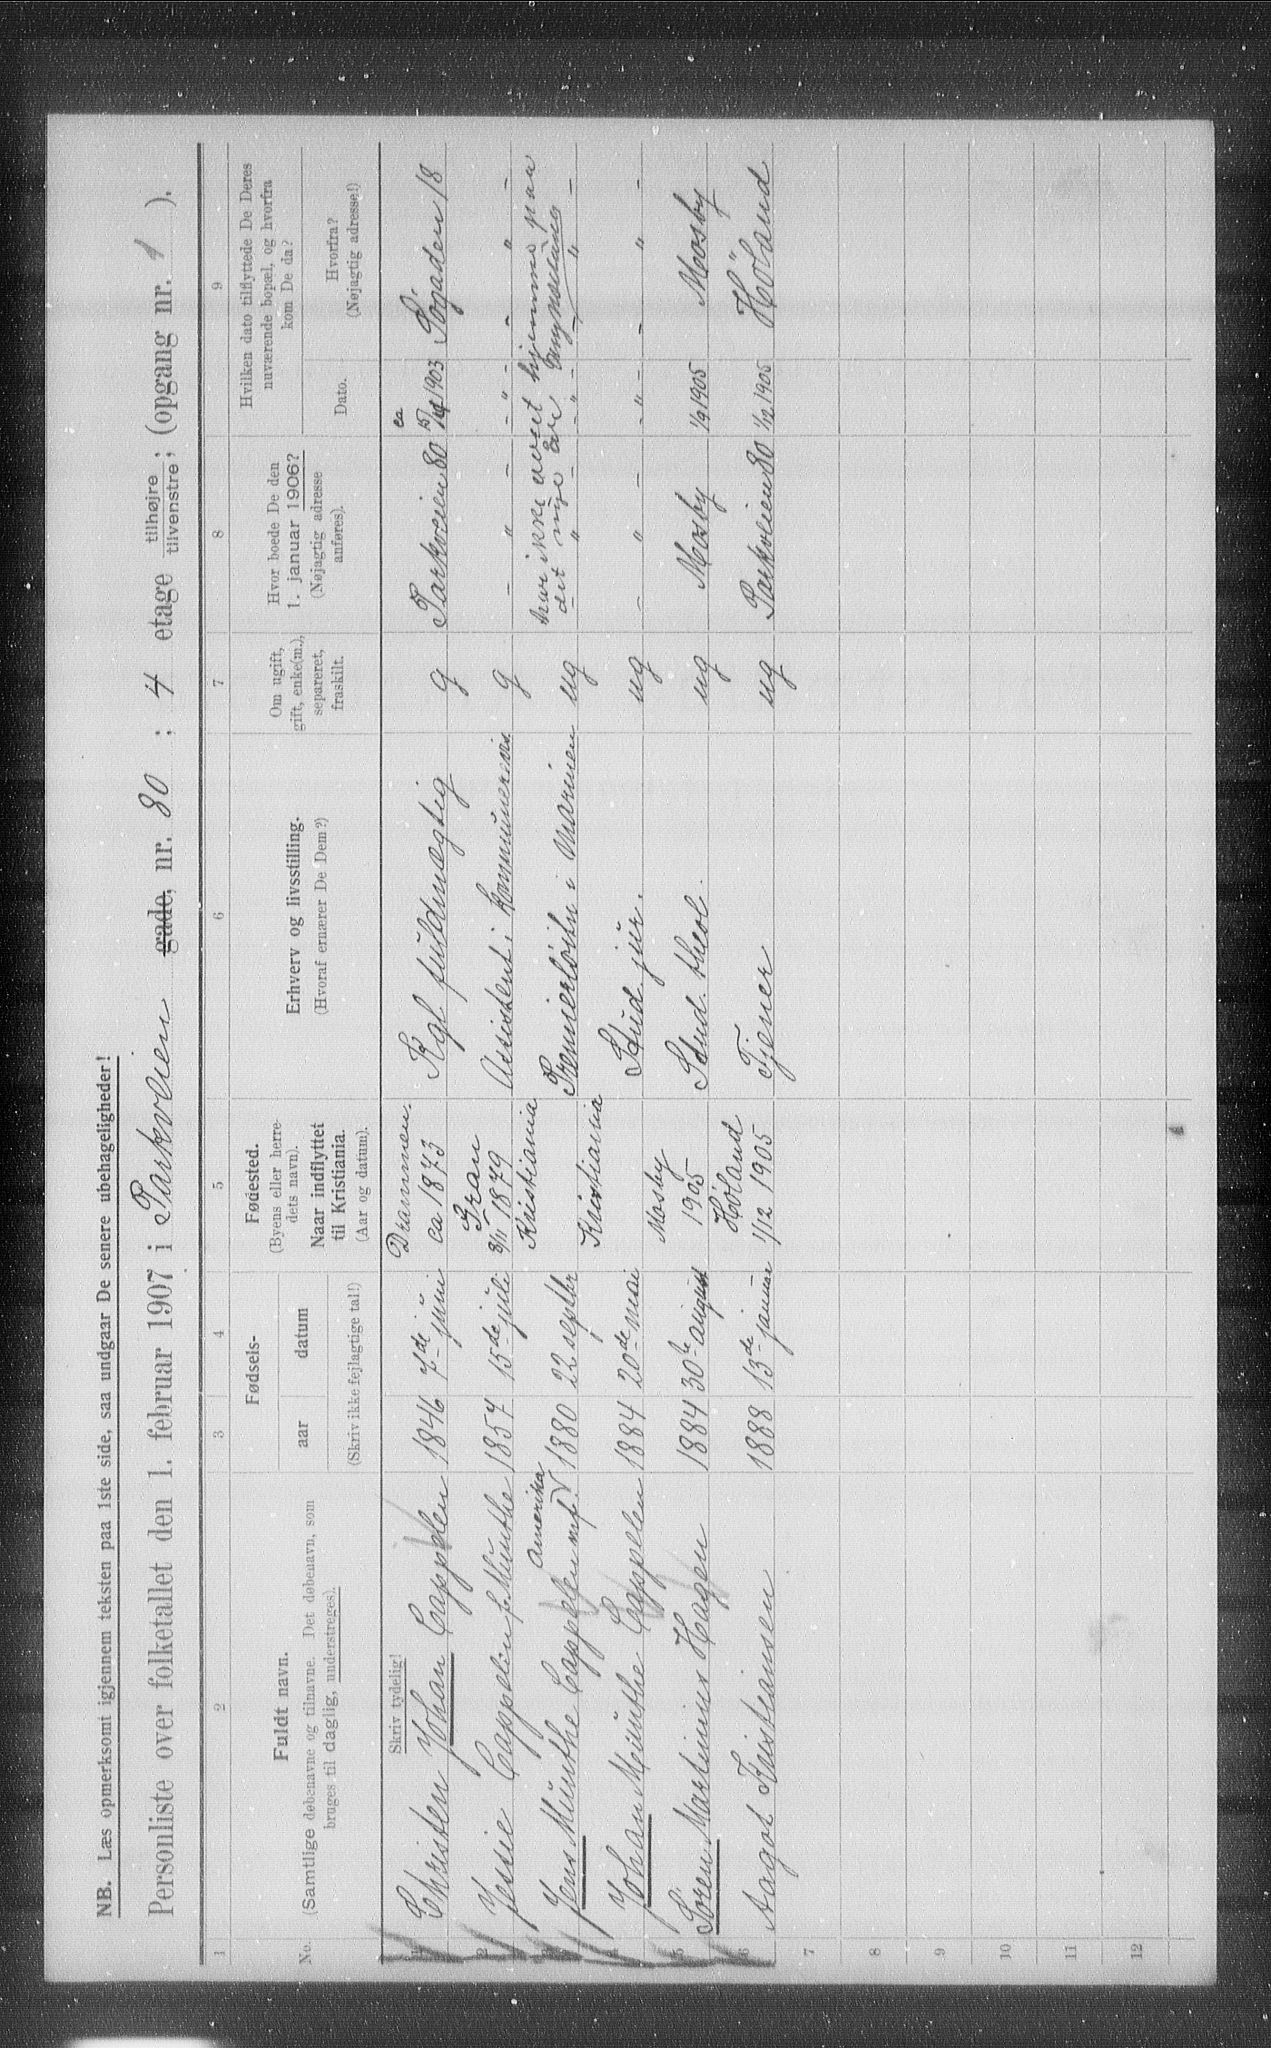 NB. Læs opmerksomt igjennem teksten paa 1ste side, saa undgaar De senere ubehageligheder!
Personliste over folketallet den 1. februar 1907 i Parkveien gade, nr. 80 ; 4 etage tilhøjre tilvenstre; (opgang nr. 1 ).
1 2 3 4 5 6 7 8 9
No.
Fuldt navn.
(Samtlige døbenavne og tilnavne. Det døbenavn, som
bruges til daglig, understreges).
Fødsels-
aar datum
(Skriv ikke fejlagtige tal!)
Fødested.
(Byens eller herre-
dets navn).
Naar indflyttet
til Kristiania.
(Aar og datum).
Erhverv og livsstilling.
(Hvoraf ernærer De Dem?)
Om ugift,
gift, enke(m.),
separeret,
fraskilt.
Hvor boede De den
1. januar 1906?
(Nøjagtig adresse
anføres).
Hvilken dato tilflyttede De Deres
nuværende bopæl, og hvorfra
kom De da?
Dato.
Hvorfra?
(Nøjagtig adresse!)
Skriv tydelig!
1 Christen Johan Cappelen 1846 7de juni Drammen. ca 1873 Kgl fuldmægtig g Parkveien 80 ca 1903 Pilgaden 18
2 Jessie Cappelen f. Münthe 1857 15de juli Gran 3/11 1879 Assistent i kommunerevis g - " - - " - - " -
3 Jens Münthe Cappelen 1880 22 septbr Kristiania Premierløitn i Marinen ug - " - - " - - " -
Amerika
har ikke været hjemme paa
det nye
4 Johan Münthe Cappelen 1884 20de mai Kristiania Stud. jur. ug - " - - " - - " -
5 Sören Martinius Hagen 1884 30te august Mosby 1905 Stud. theol. ug Mosby 1/9 1905 Mosby
6 Aagot Kristiansen 1888 13de januar Höland 1/12 1905 Tjener ug Parkveien 80 1/12 1905 Höland
7
8
9
10
11
12